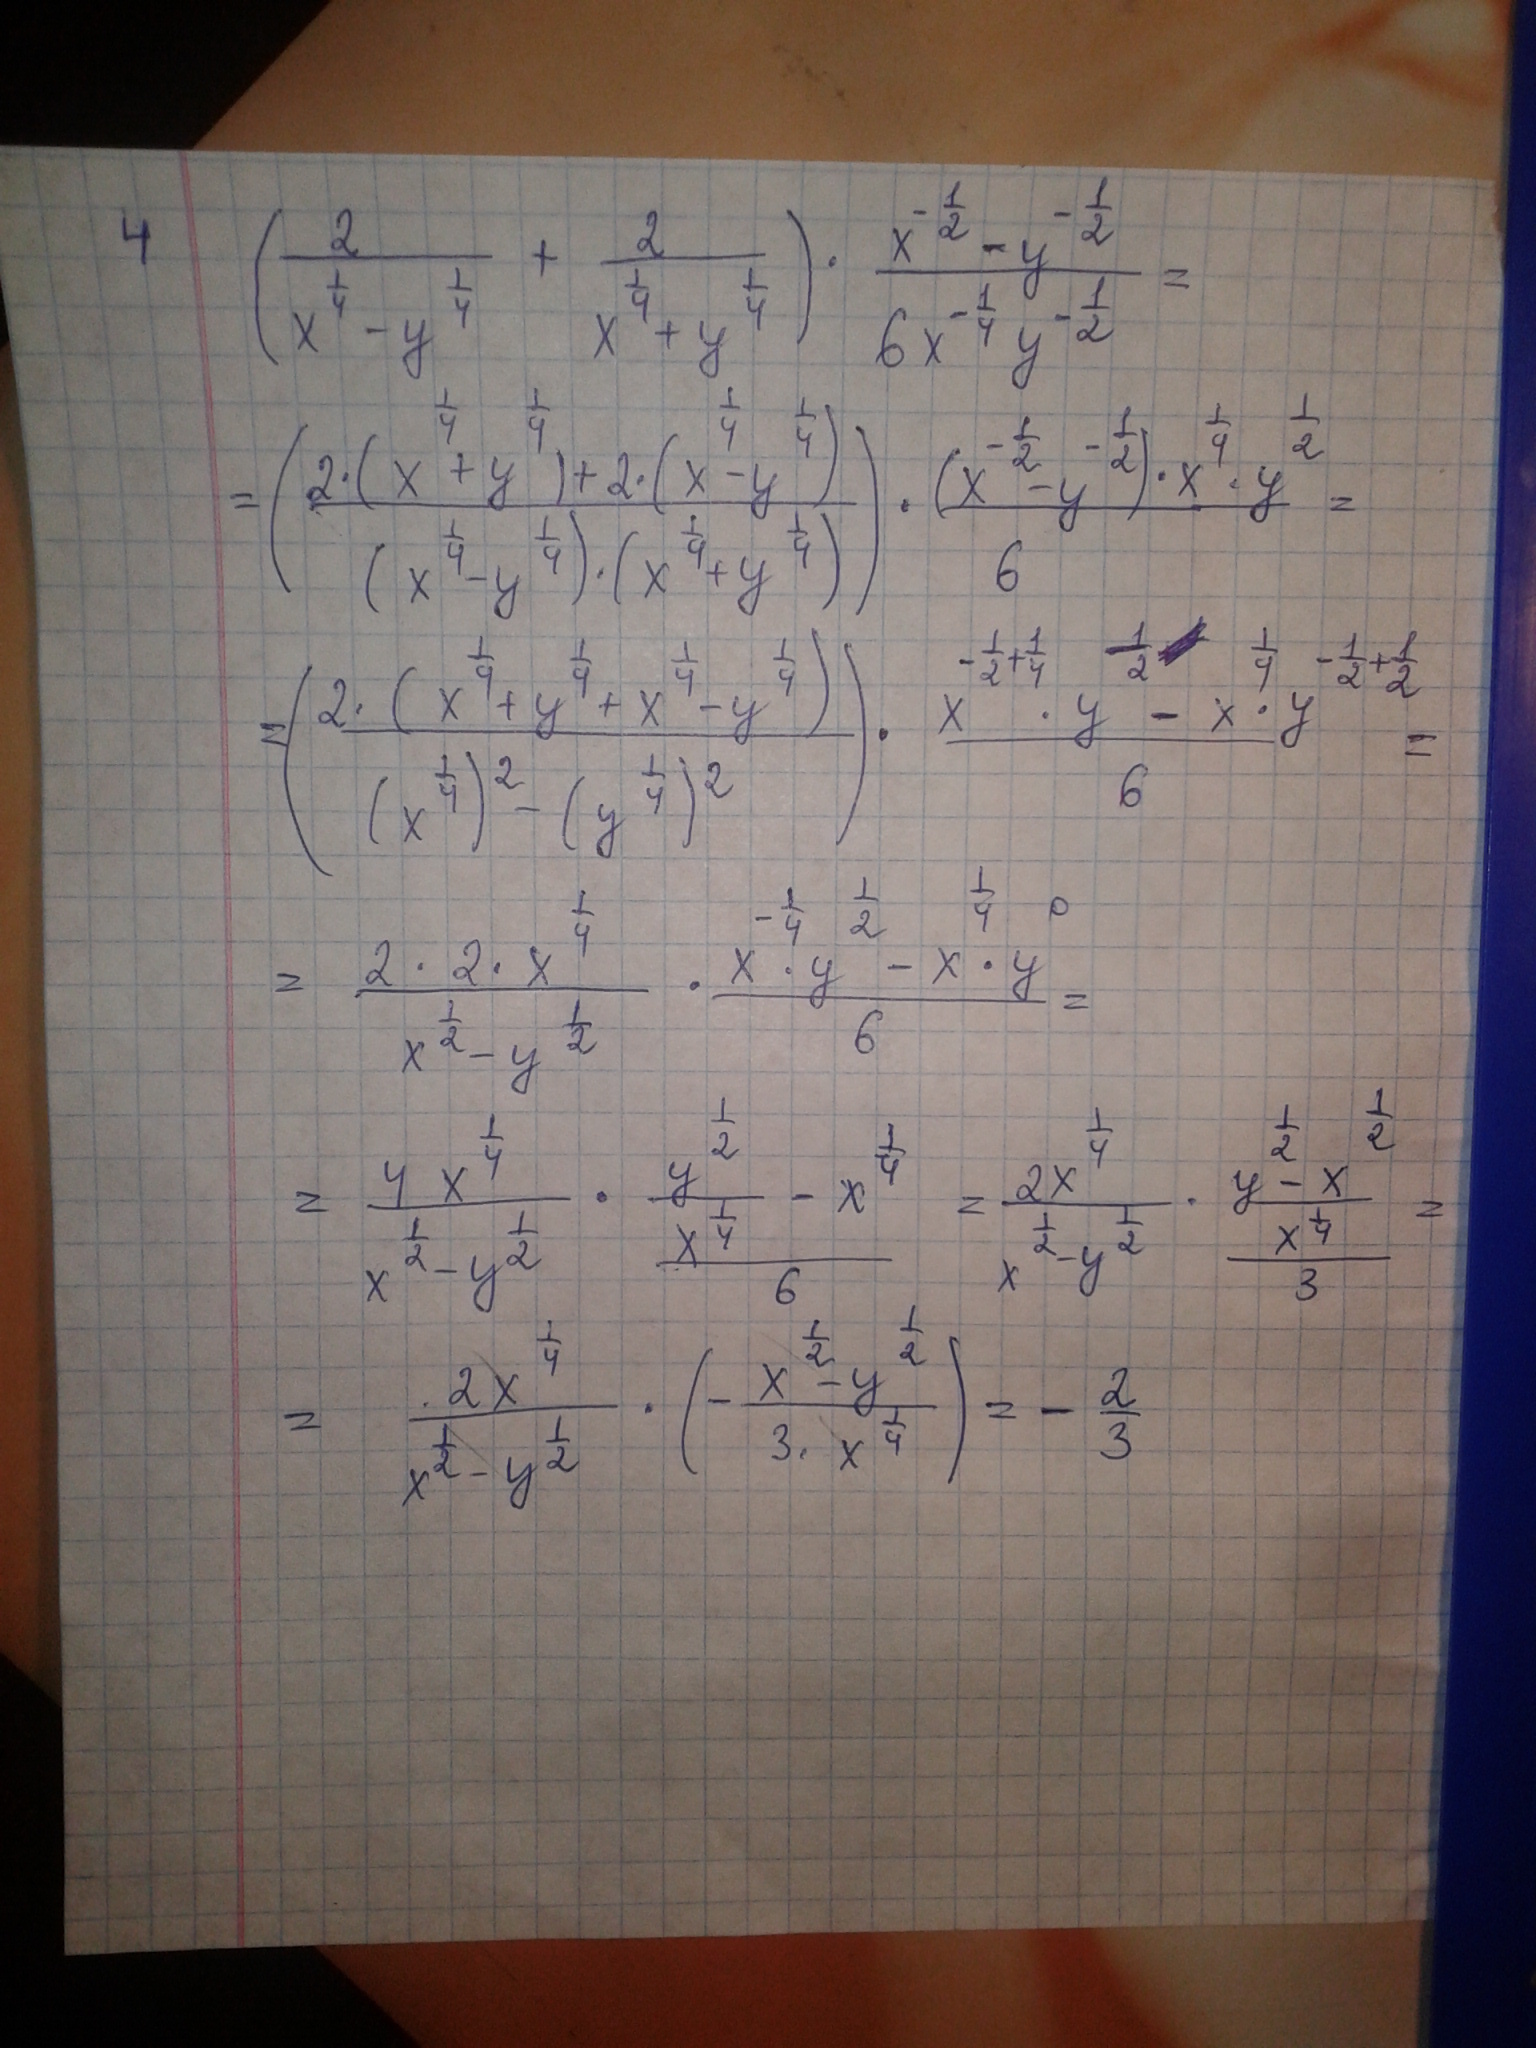 4 (2/(x^(1/4) - y^(1/4)) + 2/(x^(1/4) + y^(1/4))) · (x^(-1/2) - y^(-1/2))/(6x^(-1/4) y^(-1/2)) =
= ((2·(x^(1/4) + y^(1/4)) + 2·(x^(1/4) - y^(1/4)))/((x^(1/4) - y^(1/4))·(x^(1/4) + y^(1/4)))) · ((x^(-1/2) - y^(-1/2))·x^(1/4)·y^(1/2))/6 =
= (2·(x^(1/4) + y^(1/4) + x^(1/4) - y^(1/4))/((x^(1/4))^2 - (y^(1/4))^2)) · (x^(-1/2+1/4)·y^(1/2) - x^(1/4)·y^(-1/2+1/2))/6 =
= (2·2·x^(1/4))/(x^(1/2) - y^(1/2)) · (x^(-1/4)·y^(1/2) - x^(1/4)·y^0)/6 =
= (4x^(1/4))/(x^(1/2) - y^(1/2)) · (y^(1/2)/x^(1/4) - x^(1/4))/6 = (2x^(1/4))/(x^(1/2) - y^(1/2)) · ((y^(1/2) - x^(1/2))/x^(1/4))/3 =
= (2x^(1/4))/(x^(1/2) - y^(1/2)) · (-(x^(1/2) - y^(1/2))/(3·x^(1/4))) = - 2/3